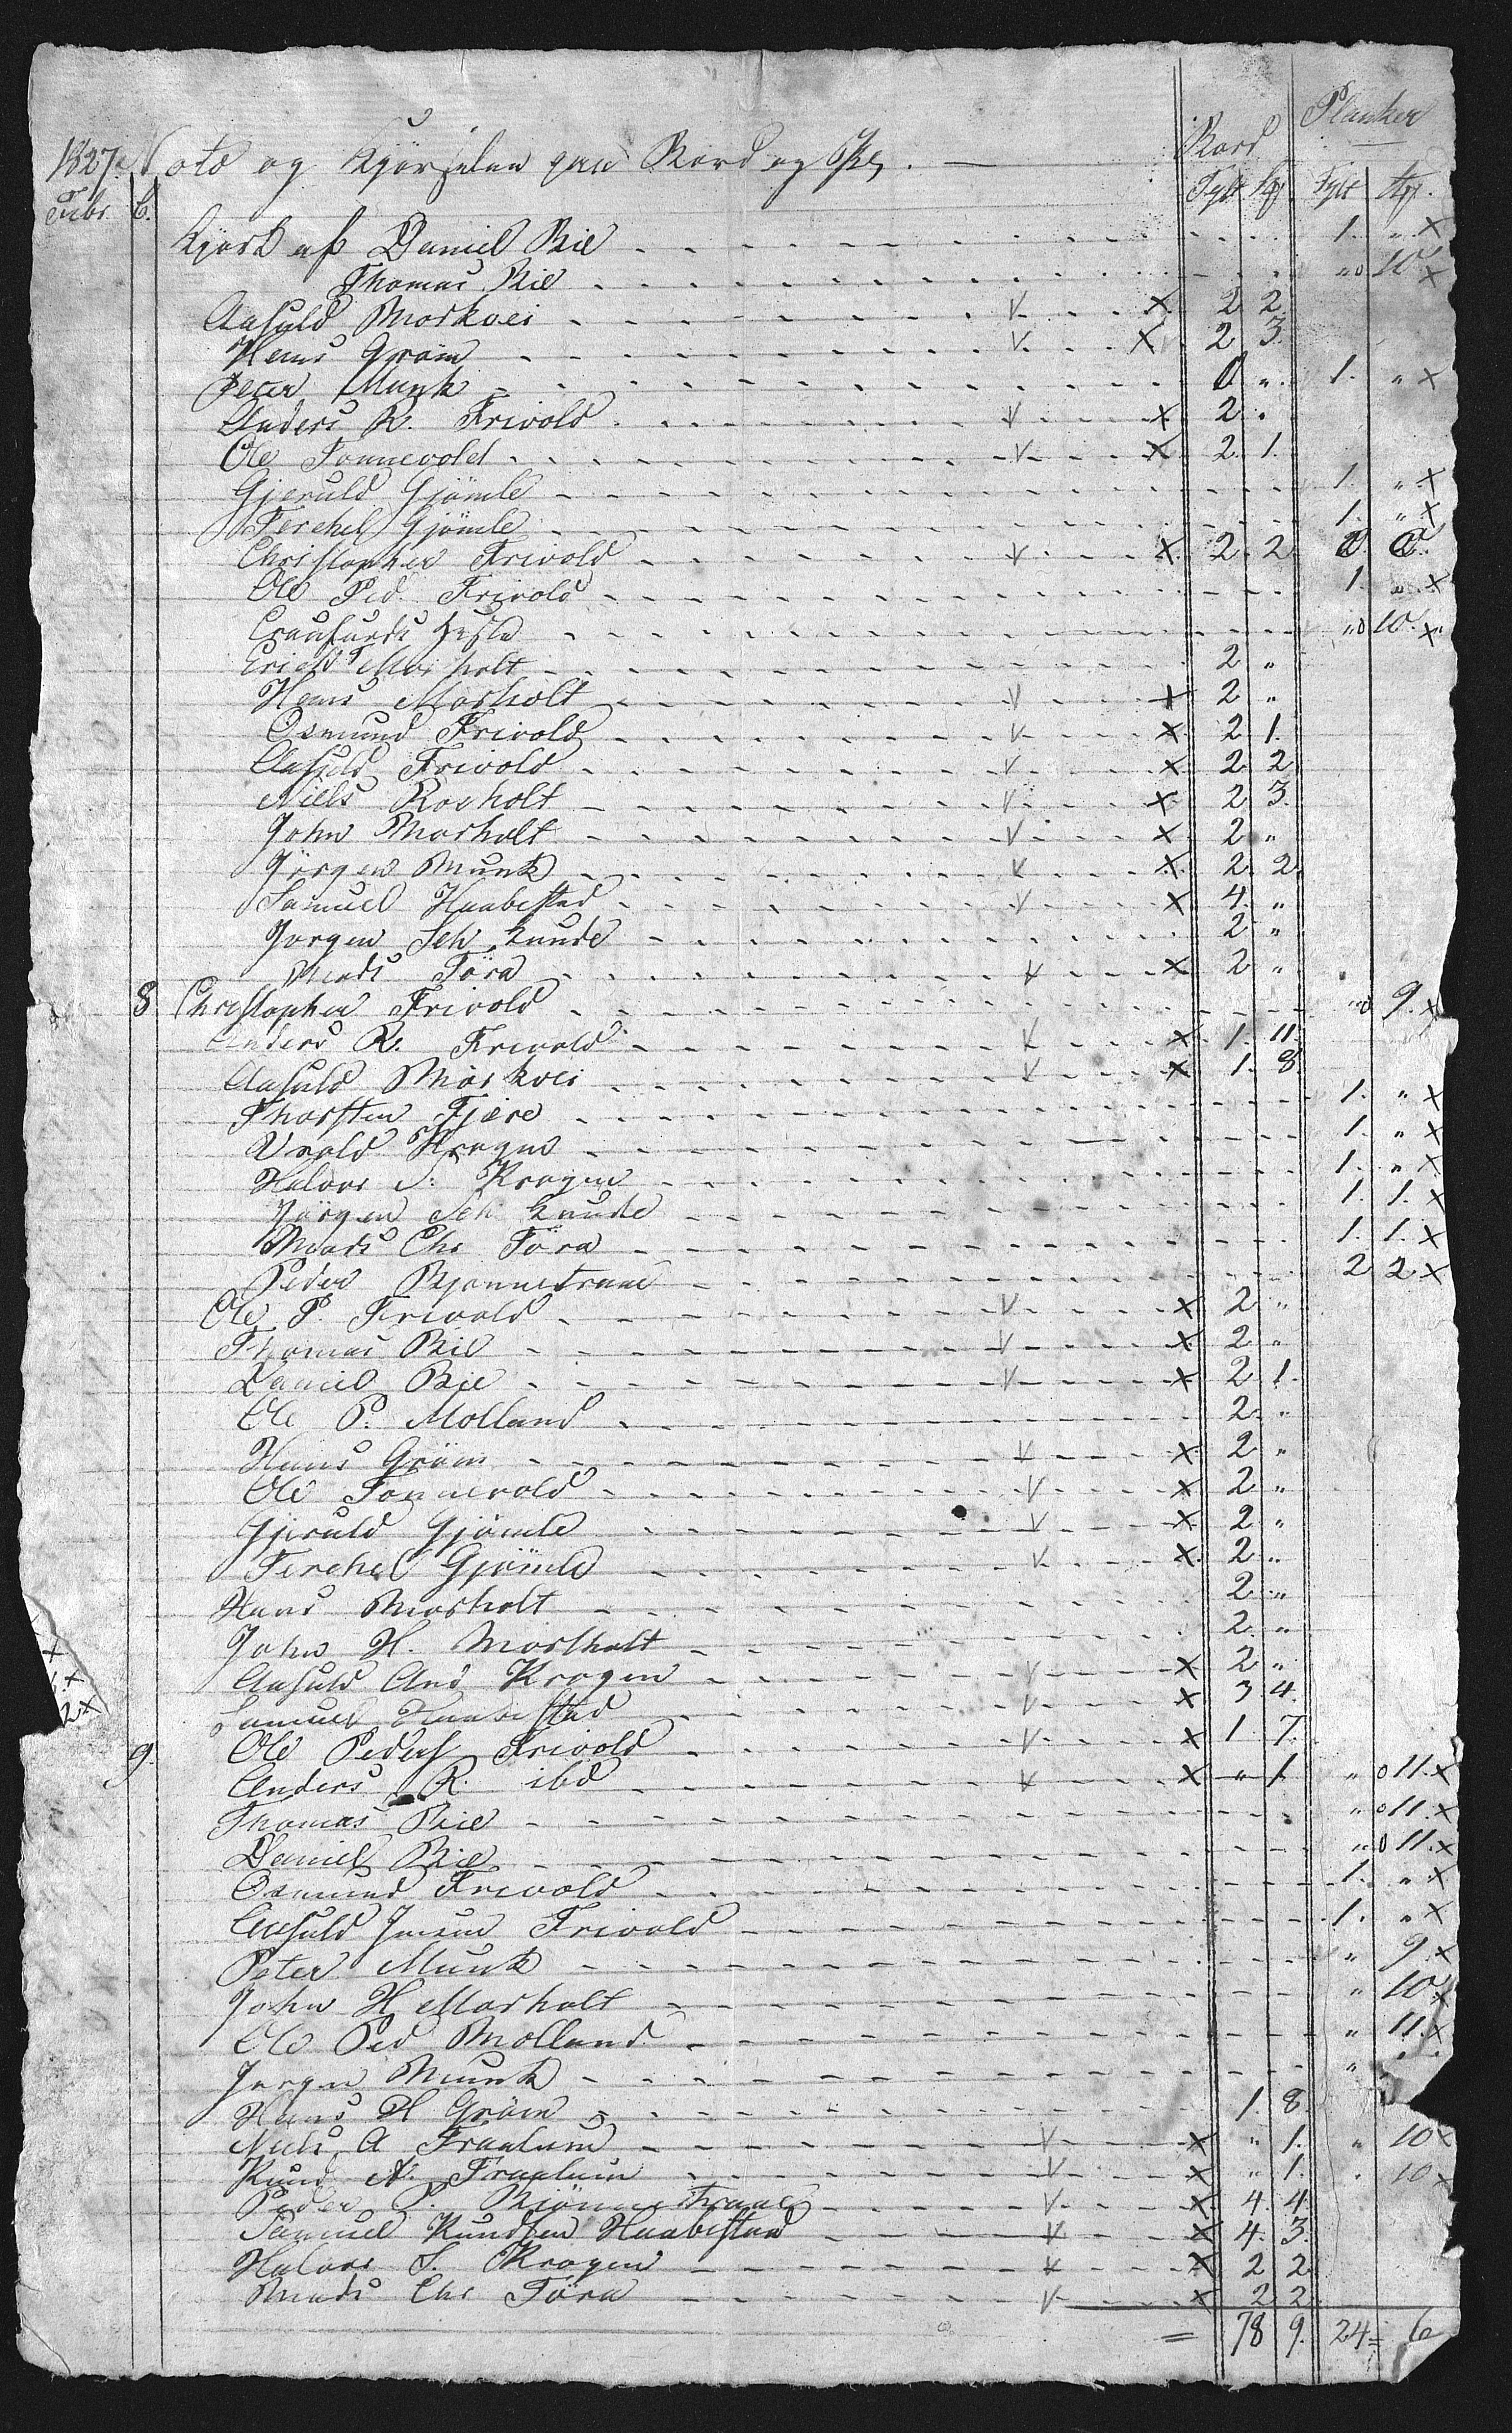 Planker
Bord
1827. Nota og Kjørselen paa Bord og
Tylt Stk Tylt Stk.
Febr. 6.
Kjørt af Daniel Bie 1. " x
Thomas Bie " 10 x
Aasuld Morkvei v x 2 2
Hans Grøm v x 2 3
Peter Munk 0 " 1. " x
Anders R. Frivold v x 2 "
Ole Tønnevold v x 2. 1.
Gjeruld Gjømle 1. " x
Terchel Gjømle 1. " x
Christopher Frivold v x 2. 2 0 0
Ole Ped. Frivold 1. " x
Craufurds " 10. x
Erich Morholt 2 "
Hans Morholt v x 2 "
Osmund Frivold v x 2 1.
Aasuld Frivold v x 2 2
Niels Roeholt v x 2 3.
John Morholt v x 2 "
Jörgen Munk v x 2. 2
Samuel Haabestad v x 4. "
Jörgen Seh. Lunde 2 "
Mads Töra v x 2 "
8 Christopher Frivold " 9. x
Anders R. Frivold v x 1. 11.
Aasuld Morkvei v x 1. 8
Thorsten Fjære 1. " x
Urold Krogen 1. " x
Halvor S. Krogen 1. " x
Jörgen Seh Lunde 1. 1. x
Mads Chr Töra 1. 1. x
Peder Bjønnetraae 2 2 x
Ole P. Frivold v x 2 "
Thomas Bie v x 2 "
Daniel Bie v x 2 1.
Ole P. Molland 2. "
Hans Gröm v x 2 "
Ole Tønnevold v x 2 "
Gjeruld Gjømle v x 2 "
Terchel Gjömle v x 2 "
Hans Morholt 2 "
John H. Morholt 2 "
Aasuld And Krogen v x 2 "
Samuel Haabestad v x 3 4.
9. Ole Peders Frivold v x 1. 7.
Anders R. ibd v x " 1 " 11. x
Thomas Bie " 11. x
Daniel Bie " 11. x
Osmund Frivold 1. " x
Aasuld Jensen Frivold 1. " x
Peter Munk " 9. x
John H Morholt " 10 x
Ole Ped Molland " 11. x
Jørgen Munk "
Hans H Gröm 1. 8
Niels A Frœlum v x " 1. " 10 x
Knud A. Frœlum v x " 1. " 10 x
Peder P. Bjönnetraae v x 4. 4.
Samuel Knudsen Haabestad v x 4. 3.
Halvor S. Krogen v x 2 2
Mads Chr Töra v x 2 2
= 78 9. 24 = 6
x
x
2 x